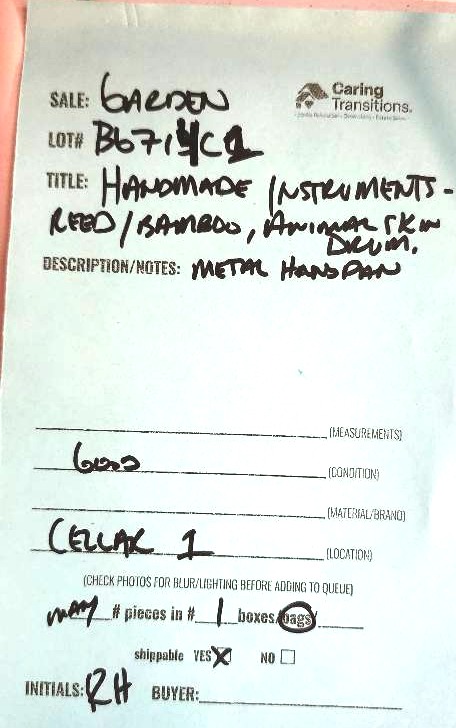 Caring
Transitions.
SALE: GARDEN
LOT# B671
TITLE: HANDMADE INSTRUMENTS-
REED/BAMBOO, ANIMAL SKIN
DRUM.
DESCRIPTION/NOTES: METAL HANDPAN
(MEASUREMENTS)
GOOD (CONDITION)
(MATERIAL/BRAND)
CELLAR 1 (LOCATION)
(CHECK PHOTOS FOR BLUR/LIGHTING BEFORE ADDING TO QUEUE)
MANY # pieces in # 1 boxes/bags/
shippable YES X NO
INITIALS: RH BUYER: